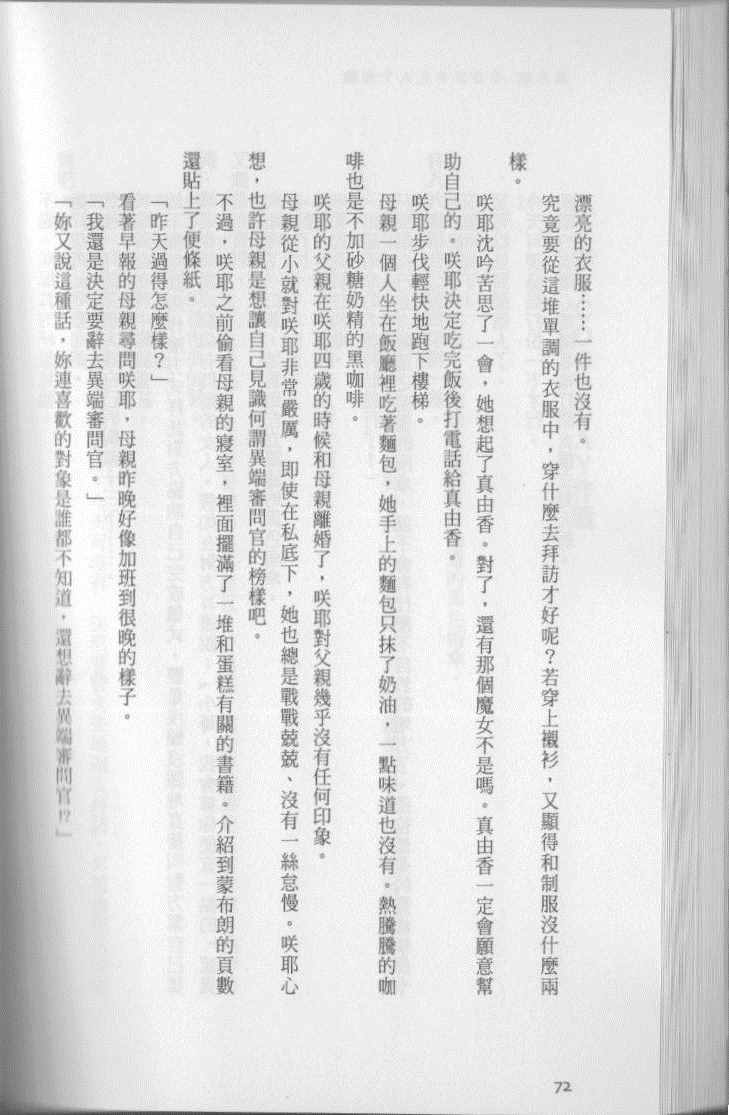 漂亮的衣服……一件也沒有。
究竟要從這堆單調的衣服中，穿什麼去拜訪才好呢？若穿上襯衫，又顯得和制服沒什麼兩
樣。
咲耶沈吟苦思了一會，她想起了真由香。對了，還有那個魔女不是嗎。真由香一定會願意幫
助自己的。咲耶決定吃完飯後打電話給真由香。
咲耶步伐輕快地跑下樓梯。
母親一個人坐在飯廳裡吃著麵包，她手上的麵包只抹了奶油，一點味道也沒有。熱騰騰的咖
啡也是不加砂糖奶精的黑咖啡。
咲耶的父親在咲耶四歲的時候和母親離婚了，咲耶對父親幾乎沒有任何印象。
母親從小就對咲耶非常嚴厲，即使在私底下，她也總是戰戰兢兢、沒有一絲怠慢。咲耶心
想，也許母親是想讓自己見識何謂異端審問官的榜樣吧。
不過，咲耶之前偷看母親的寢室，裡面擺滿了一堆和蛋糕有關的書籍。介紹到蒙布朗的頁數
還貼上了便條紙。
「昨天過得怎麼樣？」
看著早報的母親尋問咲耶，母親昨晚好像加班到很晚的樣子。
「我還是決定要辭去異端審問官。」
「妳又說這種話，妳連喜歡的對象是誰都不知道，還想辭去異端審問官!?」
72